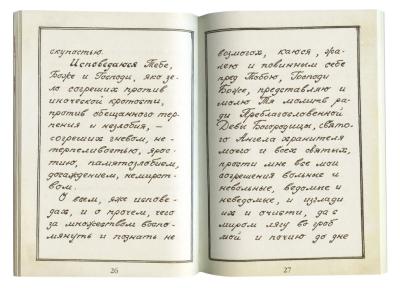 скупостью.
Исповедаюся Тебе,
Боже и Господи, яко зе-
ло согреших против
иноческой кротости,
против обещанного тер-
пения и незлобия, —
согреших гневом, не-
терпеливостью, ярос-
тию, памятозлобием,
досаждением, немирст-
вом.
О всем, яже испове-
дах, и о прочем, чего
за множеством воспо-
мянуть и познать не
26
возмогох, каюся, жа-
лею и повинным себе
пред Тобою, Господи
Боже, представляю и
молю Тя молитв ра-
ди Преблагословенной
Девы Богородицы, свято-
го Ангела хранителя
моего и всех святых,
прости мне все мои
согрешения вольные и
невольные, ведомые и
неведомые, и изглади
их и очисти, да с
миром лягу во гроб
мой и почию до дне
27